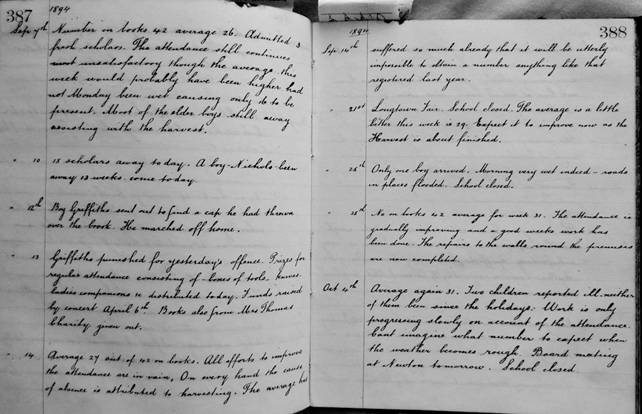 387
1894
Sep. 7th Number on books 42 average 26. Admitted 3
fresh scholars. The attendance still continues
most unsatisfactory though the average this
week would probably have been higher had
not Monday been wet causing only 16 to be
present. Most of the older boys still away
assisting with the harvest.
" 10 18 scholars away today. A boy - Nichols - been
away 13 weeks come today
" 12th Boy Griffiths sent out to find a cap he had thrown
over the book. He marched off home.
" 13 Griffiths punished for yesterday's offence. Prizes for
regular attendance consisting of boxes of tools,
ladies companions is distributed today. Funds raised
by concert April 6th. Books also from Mrs Thomas'
Charity given out.
" 14 Average 27 out of 42 on books. All efforts to improve
the attendance are in vain. On every hand the cause
of absence is attributed to harvesting. The average has
388
1894
Sep. 14th suffered so much already that it will be utterly
impossible to obtain a number anything like that
registered last year.
" 21st Longtown Fair. School closed. The average is a little
better this week is 29. Expect it to improve now as the
Harvest is about finished.
" 26th Only one boy arrived. Morning very wet indeed - roads
in places flooded. School closed.
" 28th No on books 42 average for week 31. The attendance is
gradually improving and a good weeks work has
been done. The repairs to the walls round the premises
are now completed.
Oct 4th Average again 31. Two children reported ill - neither
of them been since the holidays. Work is only
progressing slowly on account of the attendance.
Cant imagine what number to expect when
the weather becomes rough. Board meeting
at Newton tomorrow. School closed